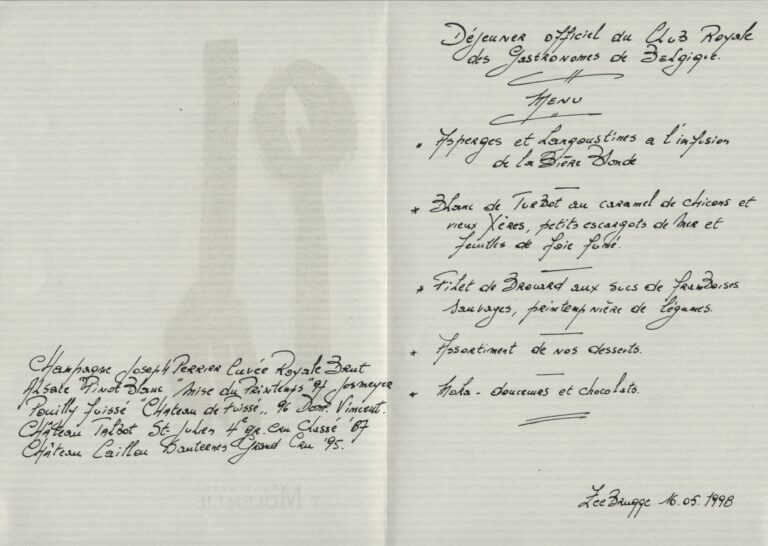 Champagne Joseph Perrier Cuvée Royale Brut
Alsace Pinot Blanc "Mise du Printemps" 97 Josmeyer
Pouilly Fuissé "Château de Fuissé" 96 Dom. Vincent.
Château Talbot St. Julien 4e gr. cru classé '87
Château Caillou Sauternes Grand Cru '95.
'T MOLENTJE
Déjeuner officiel du Club Royale
des Gastronomes de Belgique.
Menu
* Asperges et Langoustines a l'infusion
de la Bière Blonde
* Blanc de Turbot au caramel de chicons et
vieux Xères, petits escargots de mer et
feuilles de foie fumé.
* Filet de Brouard aux sucs de framboises
sauvages, printempnière de légumes.
* Assortiment de nos desserts.
* Moka - douceurs et chocolats.
ZeeBrugge 16.05.1998